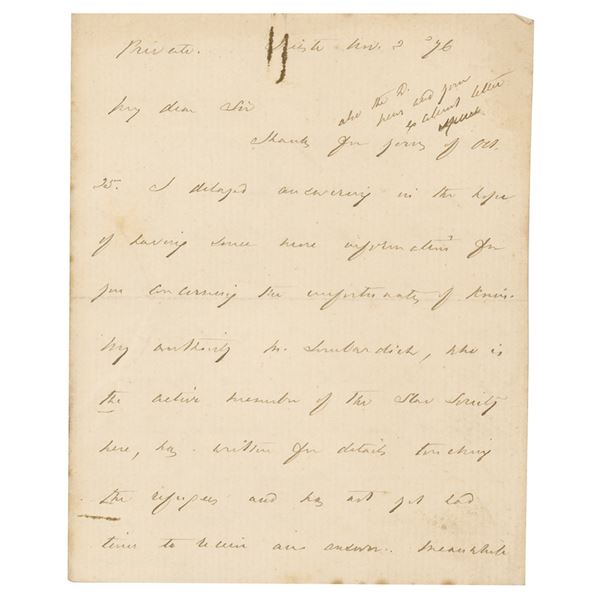 Private. Trieste Nov. 2 '76
also the D.
news and your
excellent letter
My dear Sir
Thanks for yours of Oct.
25. I delayed answering in the hope
of having some more informations for
you concerning the unfortunates of Knin.
My authority M. Lombardich, who is
the active member of the Slav Society
here, has written for details touching
the refugees and has not yet had
time to receive an answer. Meanwhile